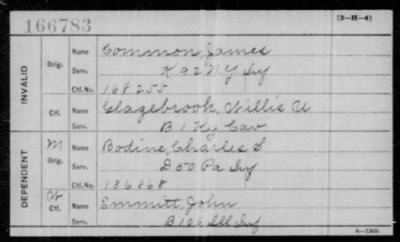 166783
(3-H-4)
INVALID
Orig.
Name Common, James
Serv. K 92 N Y Inf
Ctf. No. 168255
Ctf.
Name Glazebrook, Willis U
Serv. B 1 Ky Cav
DEPENDENT
M
Orig.
Name Bodine, Charles S
Serv. D 50 Pa Inf
Ctf. No. 136868
W
Ctf.
Name Emmitt, John
Serv. B 106 Ill Inf